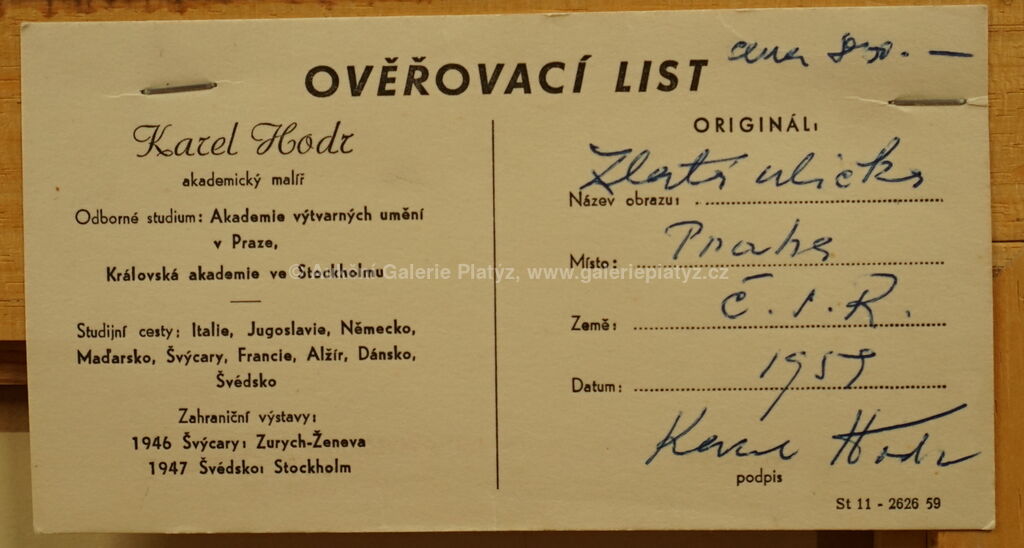 OVĚŘOVACÍ LIST
cena 850.—
Karel Hodr
akademický malíř
Odborné studium: Akademie výtvarných umění
v Praze,
Královská akademie ve Stockholmu
Studijní cesty: Italie, Jugoslavie, Německo,
Maďarsko, Švýcary, Francie, Alžír, Dánsko,
Švédsko
Zahraniční výstavy:
1946 Švýcary: Zurych-Ženeva
1947 Švédsko: Stockholm
ORIGINÁL:
Název obrazu: Zlatá ulička
Místo: Praha
Země: Č.S.R.
Datum: 1959
Karel Hodr
podpis
St 11 - 2626 59
© Aukční Galerie Platýz, www.galerieplatyz.cz